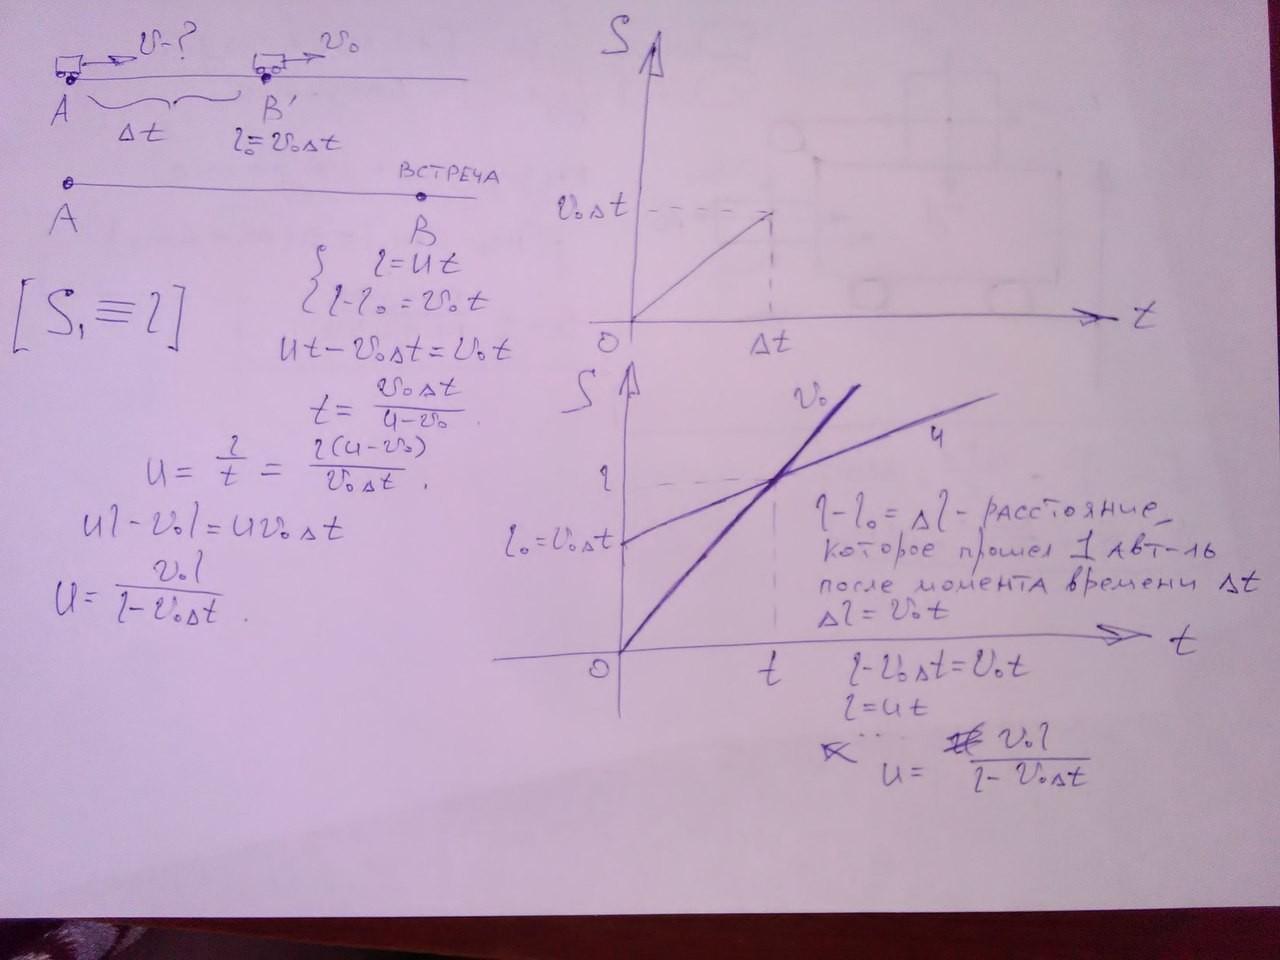 v-?
v₀
A
B'
Δt
l₀=v₀Δt
ВСТРЕЧА
A
B
[S₁≡l]
{ l=ut
l-l₀=v₀t
ut-v₀Δt=v₀t
t= v₀Δt/(u-v₀).
u= l/t = l(u-v₀)/(v₀Δt).
ul-v₀l=uv₀Δt
u= v₀l/(l-v₀Δt).
S
v₀Δt
0
Δt
t
S
v₀
u
l
l₀=v₀Δt
0
t
t
l-l₀=Δl-расстояние,
которое прошел 1 авт-ль
после момента времени Δt
Δl=v₀t
l-v₀Δt=v₀t
l=ut
u= v₀l/(l-v₀Δt)